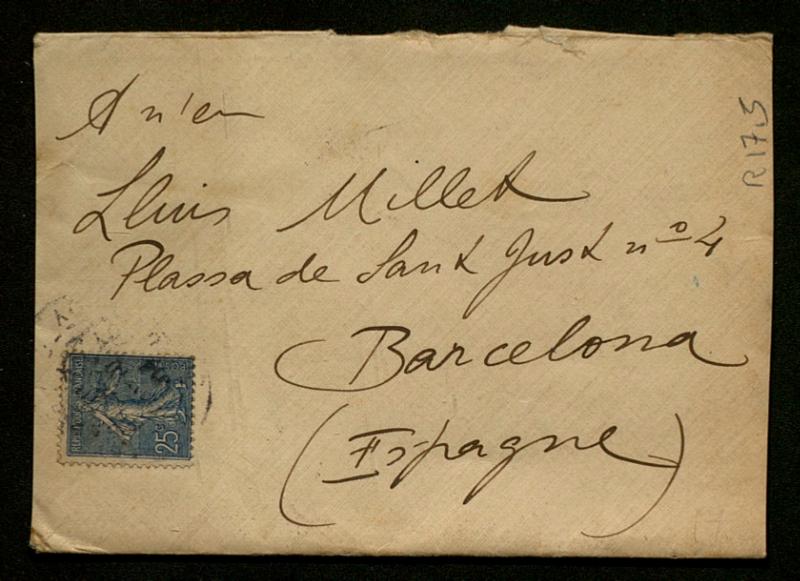 A n'en
Lluis Millet
Plassa de Sant Just nº 4
Barcelona
(Espagne)
R 17,5
REPUBLIQUE FRANÇAISE
25 c